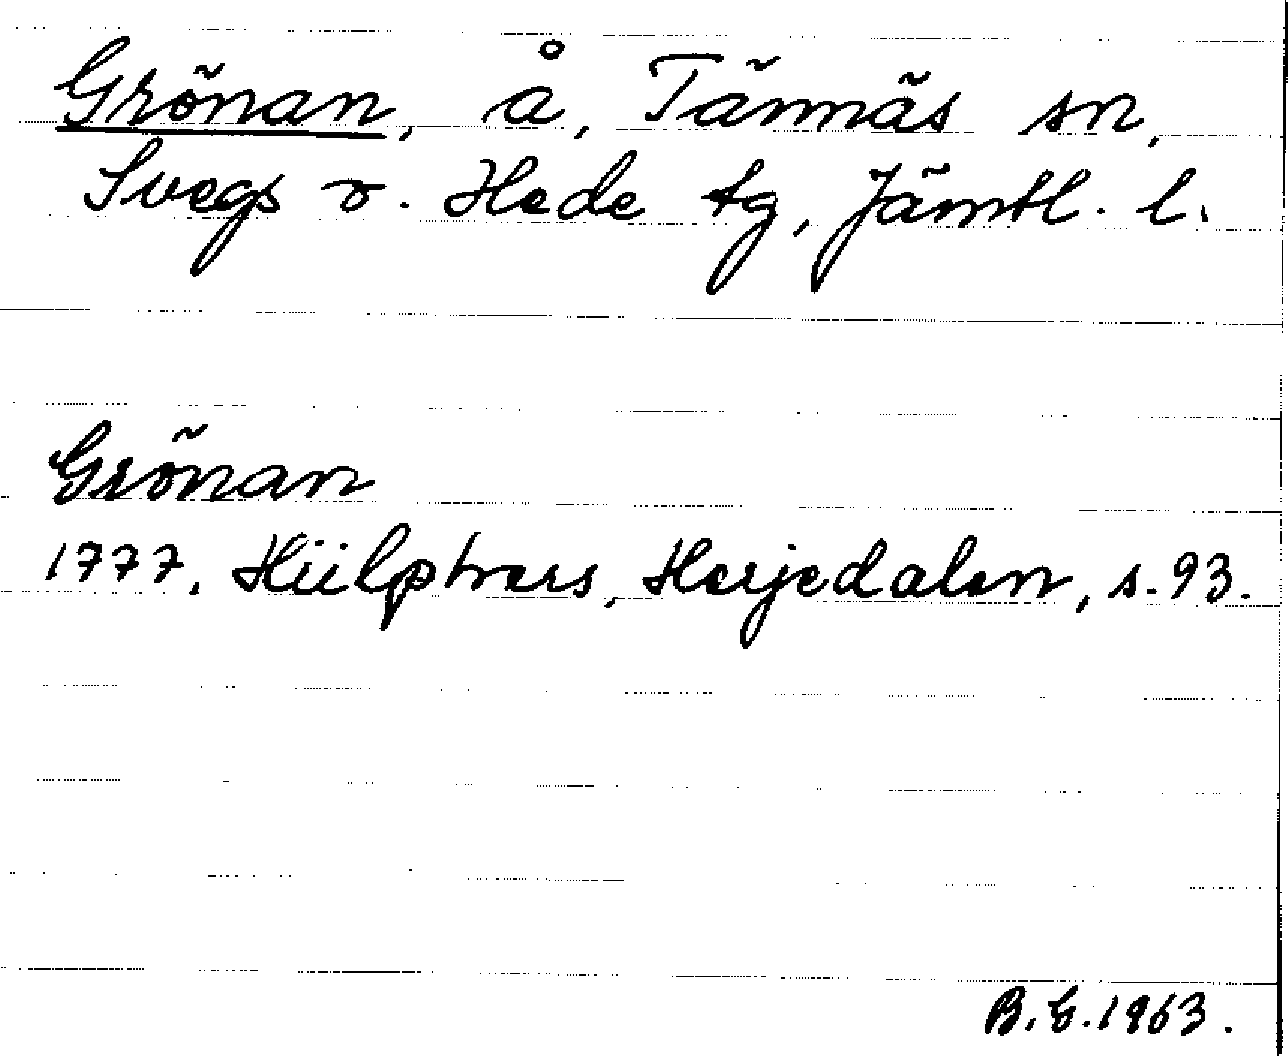 Grönan, å, Tännäs sn,
Svegs o. Hede tg, Jämtl. l.
Grönan
1777. Hülphers, Herjedalen, s. 93.
B.G. 1963.